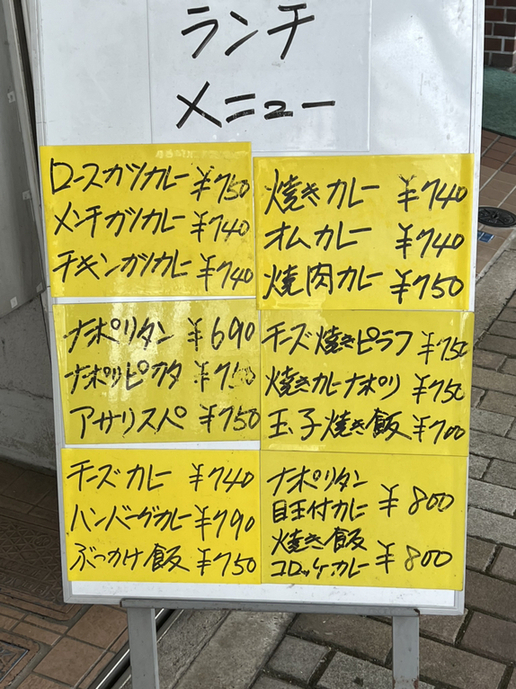 ランチ
メニュー
ロースカツカレー ¥750
メンチカツカレー ¥740
チキンカツカレー ¥740
焼きカレー ¥740
オムカレー ¥740
焼肉カレー ¥750
ナポリタン ¥690
ナポリピカタ ¥750
アサリスペ ¥750
チーズ焼きピラフ ¥750
焼きカレーナポリ ¥750
玉子焼き飯 ¥700
チーズカレー ¥740
ハンバーグカレー ¥790
ぶっかけ飯 ¥750
ナポリタン
目玉付カレー ¥800
焼き飯
コロッケカレー ¥800